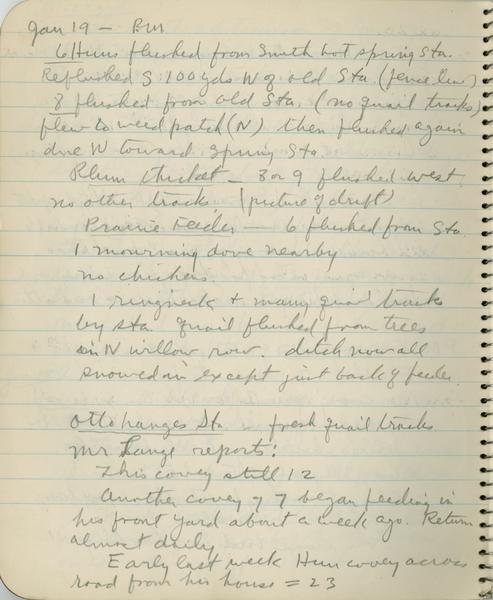 Jan 19 — BM
6 Huns flushed from Smith hot spring Sta.
Reflushed S. 100 yds W of old Sta. (fence line)
8 flushed from old Sta. (no quail tracks)
flew to weed patch (N) then flushed again
due W toward Spring Sta.
Plum thicket — 8 or 9 flushed west,
no other tracks (picture of drift)
Prairie Feeder — 6 flushed from Sta.
1 mourning dove nearby
no chickens.
1 ringneck + many quail tracks
by sta. quail flushed from trees
in N willow row. ditch now all
snowed in except just back of feeder.
Otto Langes Sta. — fresh quail tracks
Mr Lange reports:
This covey still 12
Another covey of 7 began feeding in
his front yard about a week ago. Return
almost daily
Early last week Hun covey across
road from his house = 23